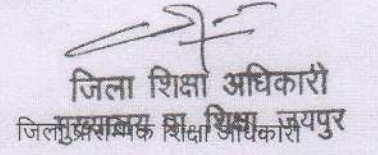 जिला शिक्षा अधिकारी
मुख्यालय प्रा. शिक्षा जयपुर
जिला प्रारम्भिक शिक्षा अधिकारी